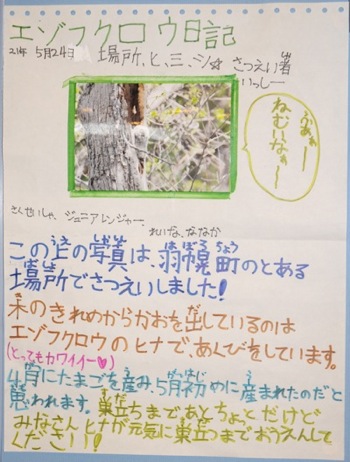 エゾフクロウ日記
21年 5月24日 場所、ヒ、ミ、ツ☆ さつえい者
いっしー
ふあぁー
ねむいなぁ〜
さくせいしゃ、ジュニアレンジャー
れいな、ななか
この上の写真は、羽幌町のとある
はぼろちょう
場所でさつえいしました!
木のきれめからかおを出しているのは
エゾフクロウのヒナで、あくびをしています。
(とってもカワイイー♥)
4月にたまごを産み、5月初めに産まれたのだと
思われます。巣立ちまであとちょっとだけど
みなさんヒナが元気に巣立つまでおうえんして
ください!!